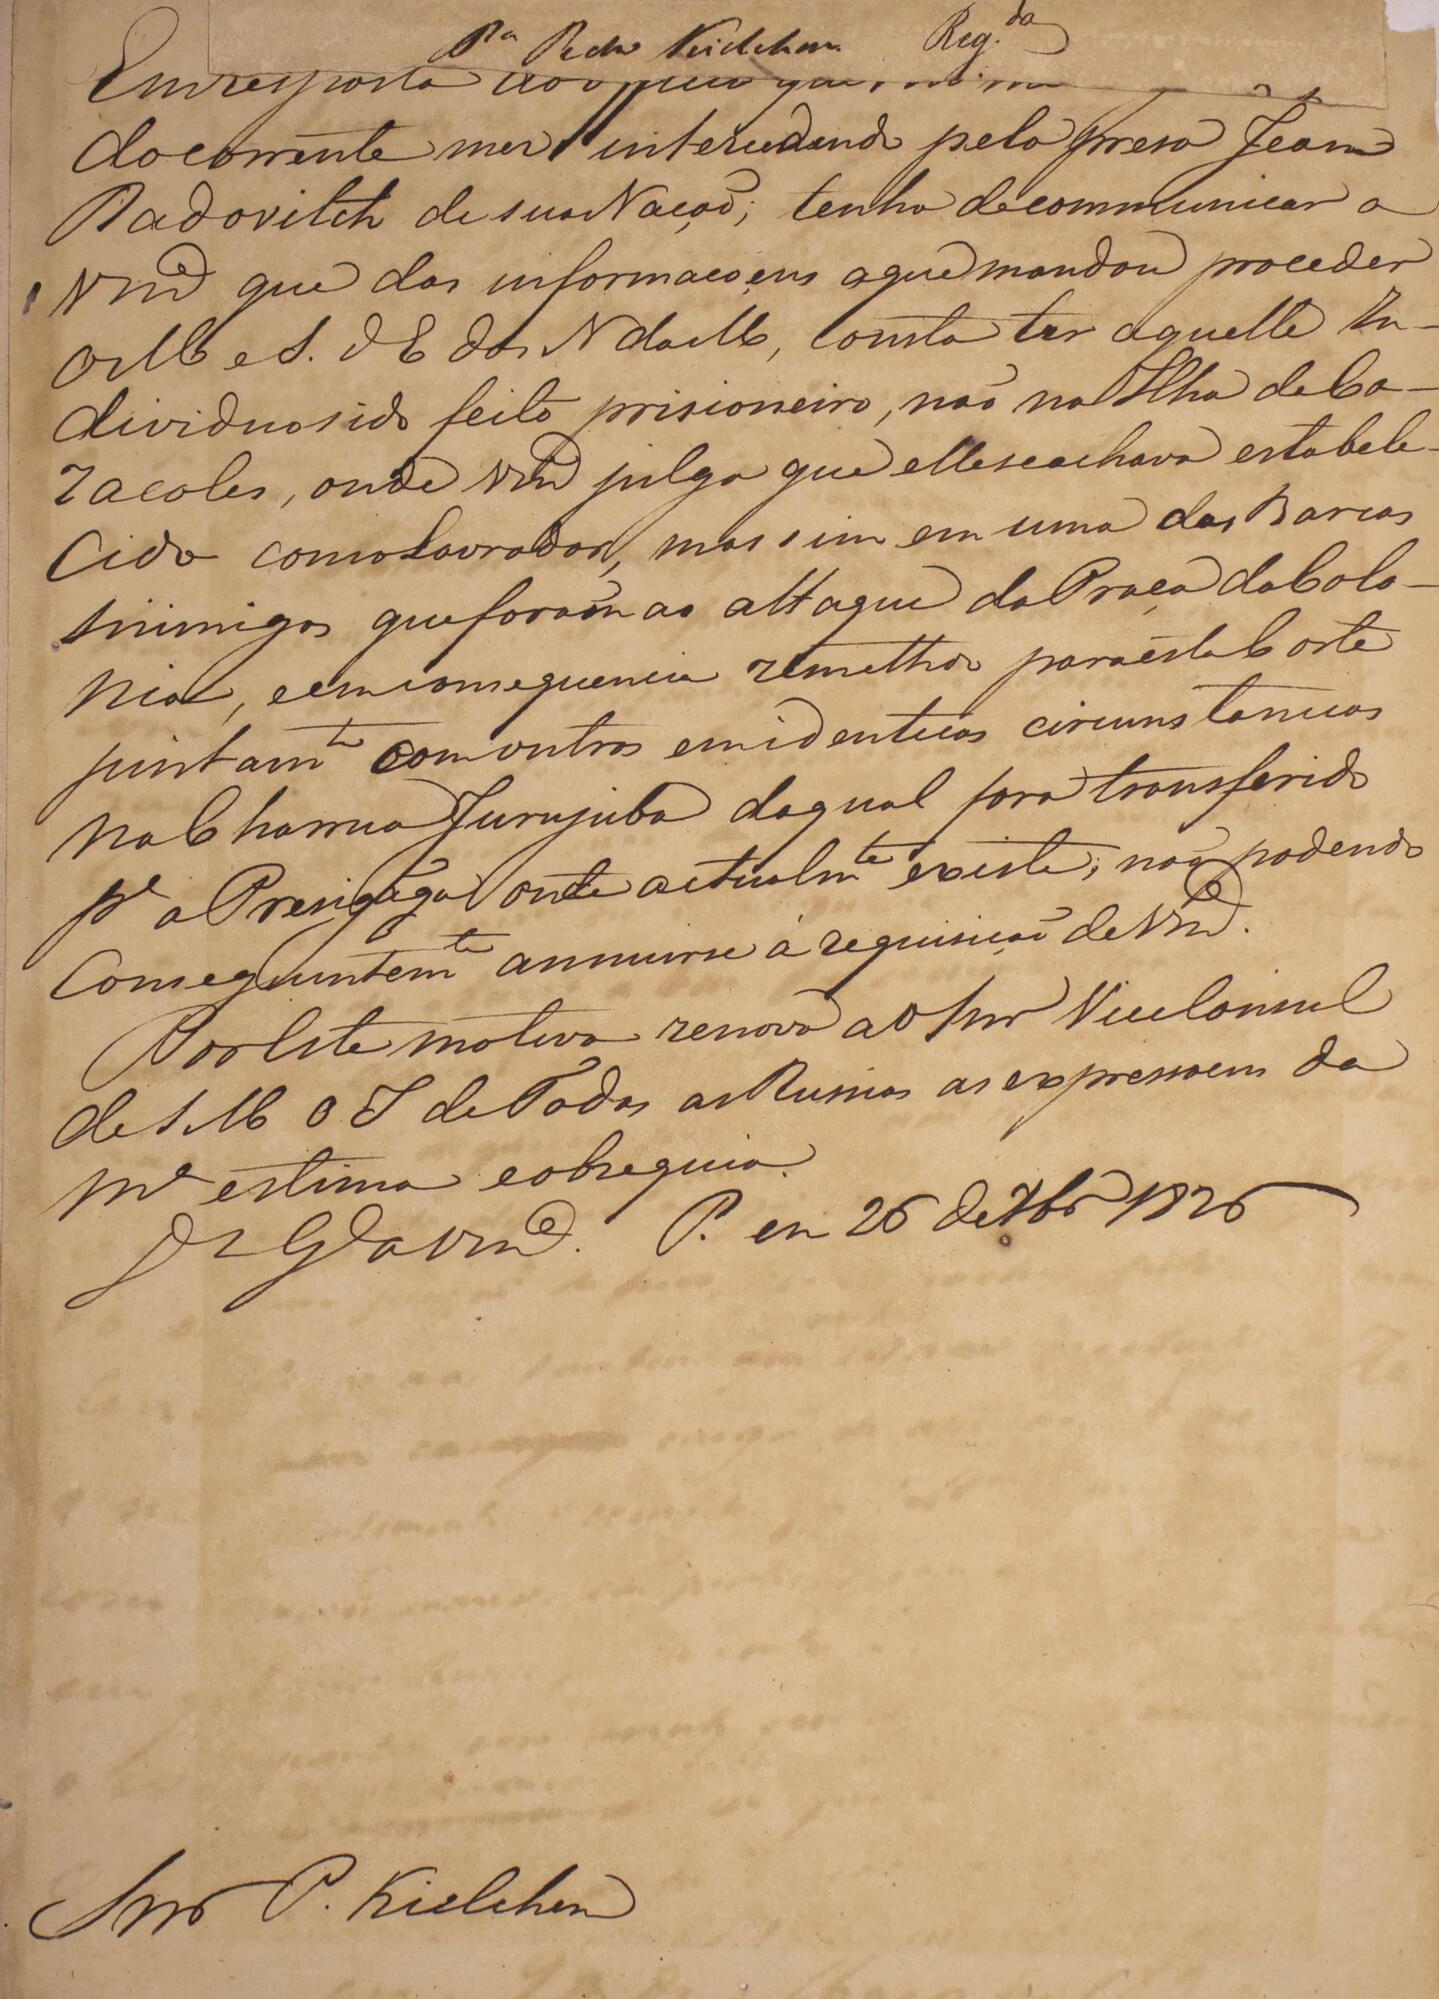 Pª Pedro Kielchen Reg.da
Em resposta ao
do corrente mez intercedendo pelo preso Jean
Radovitch de sua Naçaõ; tenho de communicar a
Vmce que das informaçoens a que mandou proceder
o M e S. d E dos N da M, consta ter aquelle In-
dividuo sido feito prisioneiro, naõ na Ilha de Ca-
racoles, onde Vmce julga que elle se achava estabele-
cido como Lavrador, mas sim em uma das Barcas
inimigas que foraõ ao attaque da Praça da Colo-
nia, e em consequencia remettido para esta Corte
juntamte com outros em identicas circunstancias
na Charrua Jurujuba da qual fora transferido
pª a Presiganga onde actualmte existe; naõ podendo
Conseguintemte annuir-se á requisiçaõ de Vmce.
Por Este motivo renovo ao Snr Vice Consul
de S M O I de Todas as Russias as expressoens da
mª estima e obsequio.
Ds Gde a Vmce. P. em 26 de 7bro 1826
Snr P. Kielchen